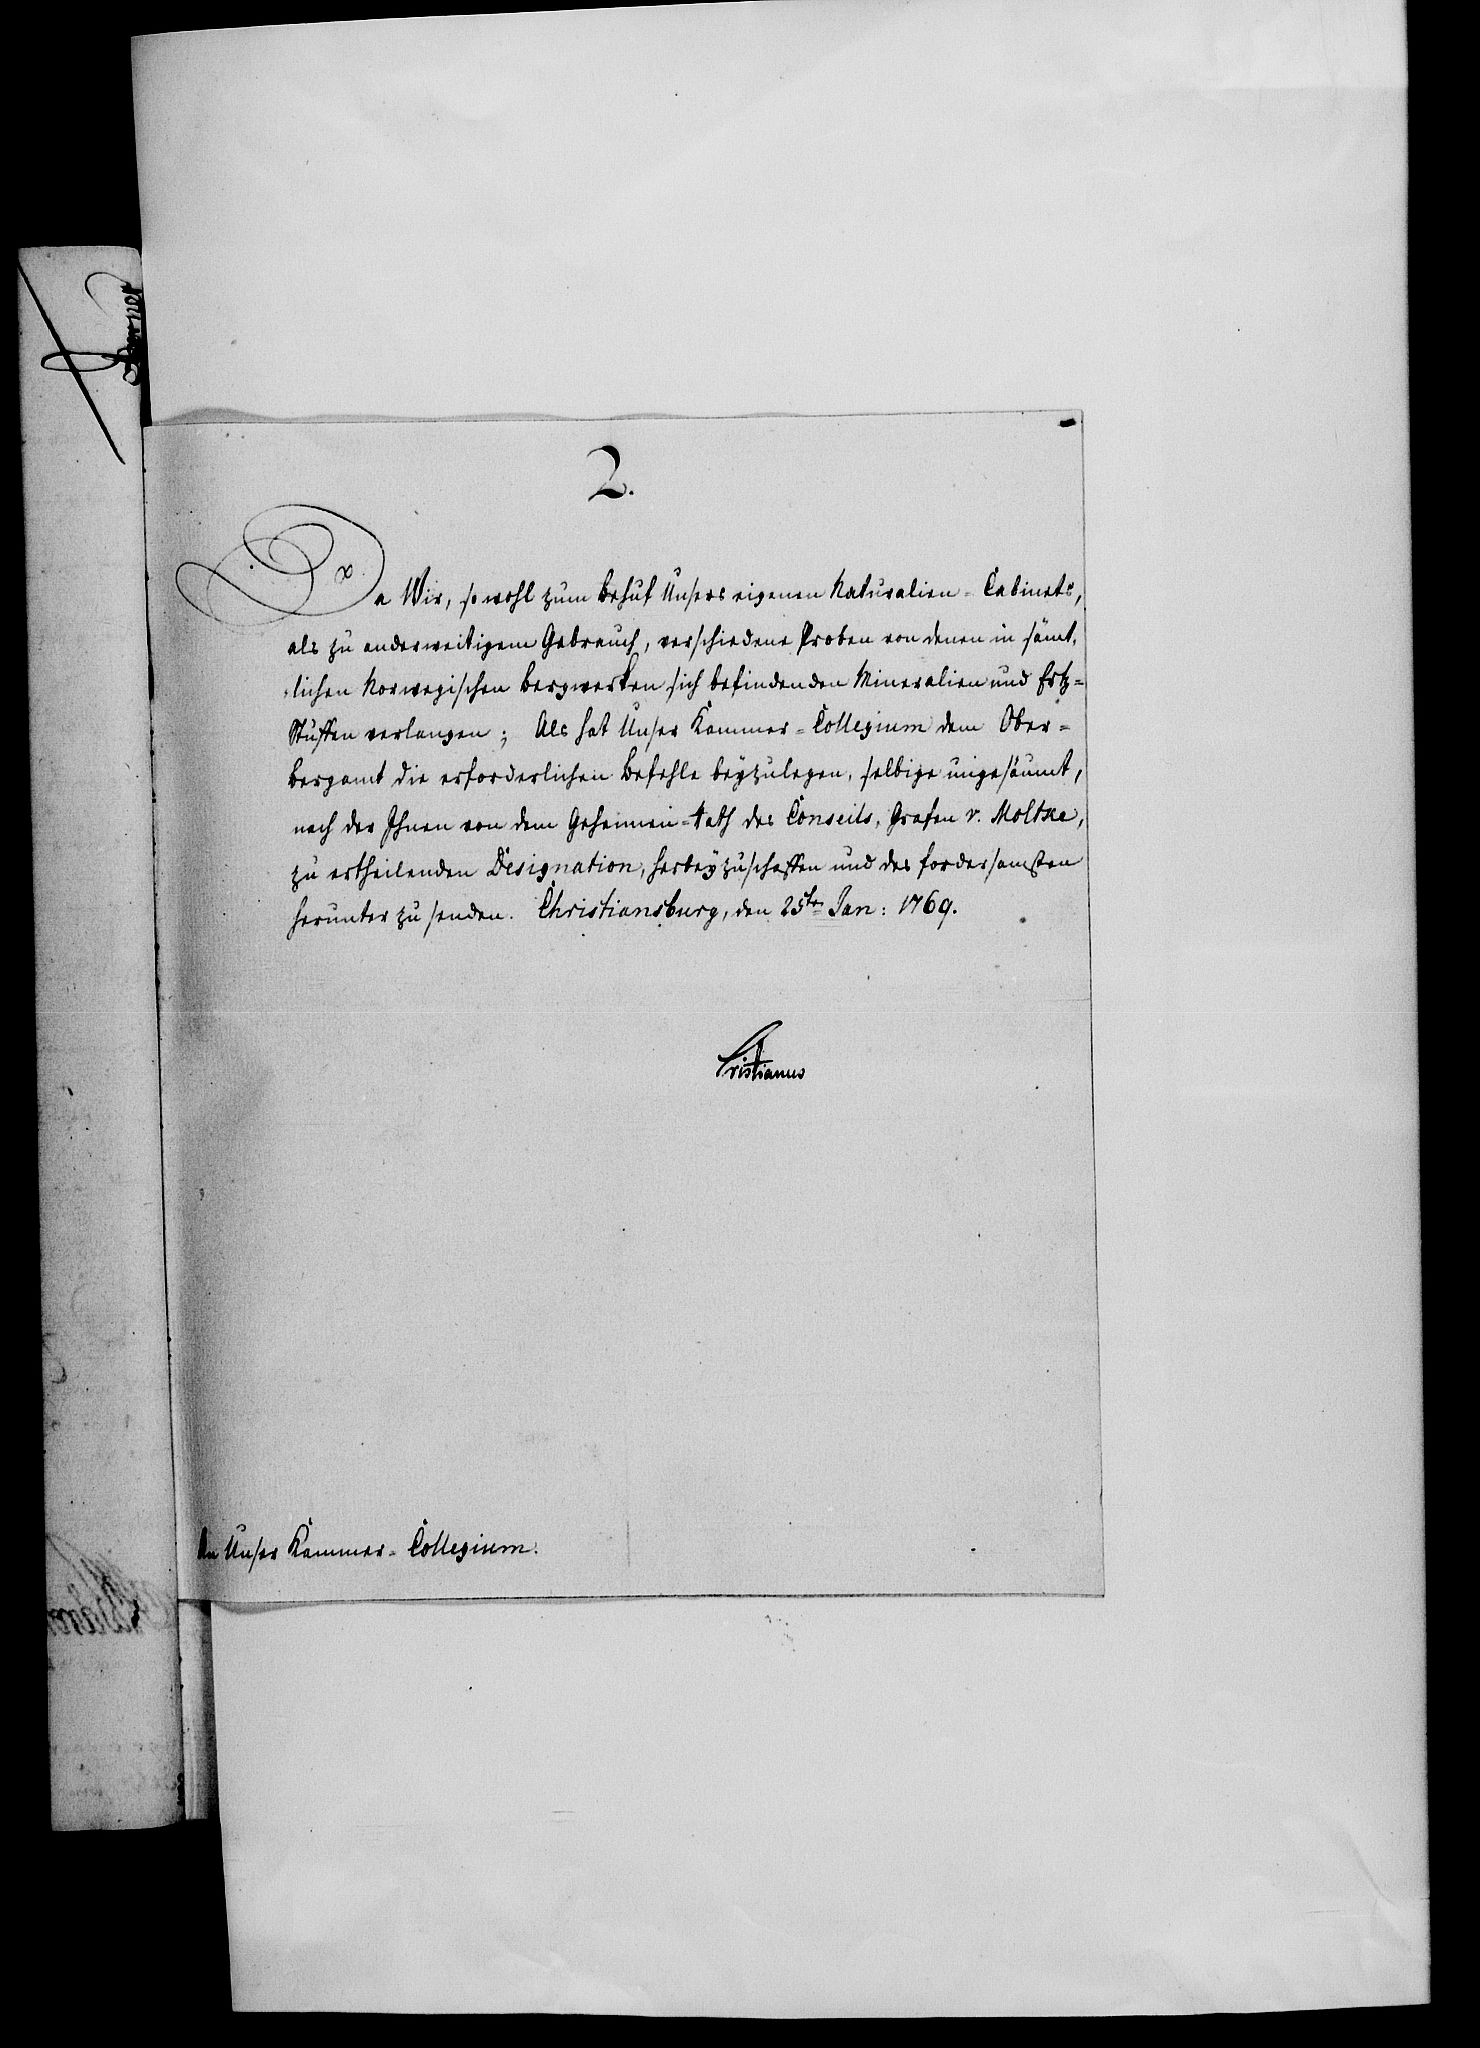 2.
Da Wir, so wohl zum Behuf Unsers eigenen Naturalien-Cabinets,
als zu anderweitigem Gebrauch, verschiedene Proben von denen in sämt-
lichen Norwegischen Bergwerken sich befindenden Mineralien und Ertz-
Stuffen verlangen; Als hat Unser Kammer-Collegium dem Ober-
bergamt die erforderlichen Befehle beyzulegen, selbige ungesäumt,
nach der Ihnen von dem Geheimen-Rath des Conseils, Grafen v. Moltke,
zu ertheilenden Designation, herbeyzuschaffen und des fordersamsten
herunter zu senden. Christiansburg, den 25ten Jan: 1769.
Cristianus
An Unser Kammer-Collegium.